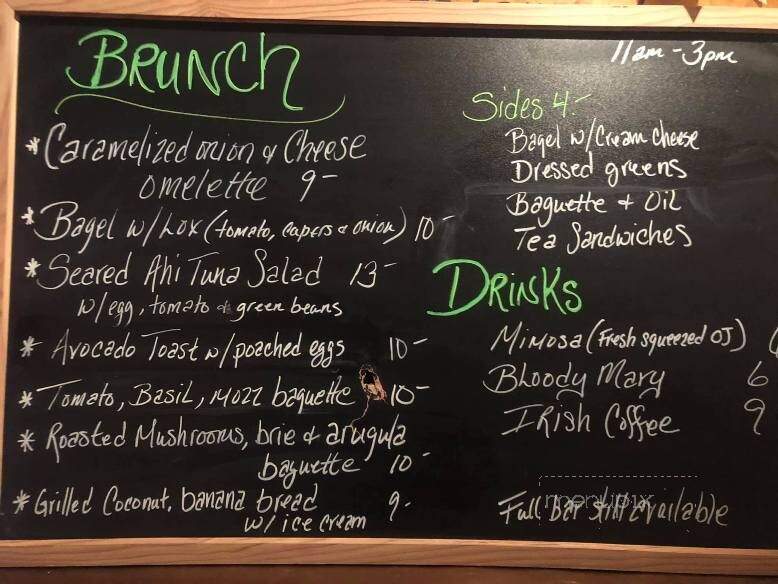 BRUNCH
* Caramelized onion & Cheese
omelette 9-
* Bagel w/ Lox (tomato, capers & onion) 10-
* Seared Ahi Tuna Salad 13-
w/ egg, tomato & green beans
* Avocado Toast w/ poached eggs 10-
* Tomato, Basil, mozz baguette 10-
* Roasted Mushrooms, brie & arugula
baguette 10-
* Grilled Coconut, banana bread 9-
w/ ice cream
11am - 3pm
Sides 4.-
Bagel w/ Cream cheese
Dressed greens
Baguette + Oil
Tea Sandwiches
DRINKS
Mimosa (Fresh squeezed OJ)
Bloody Mary 6
Irish Coffee 9
Full bar still available
menupix